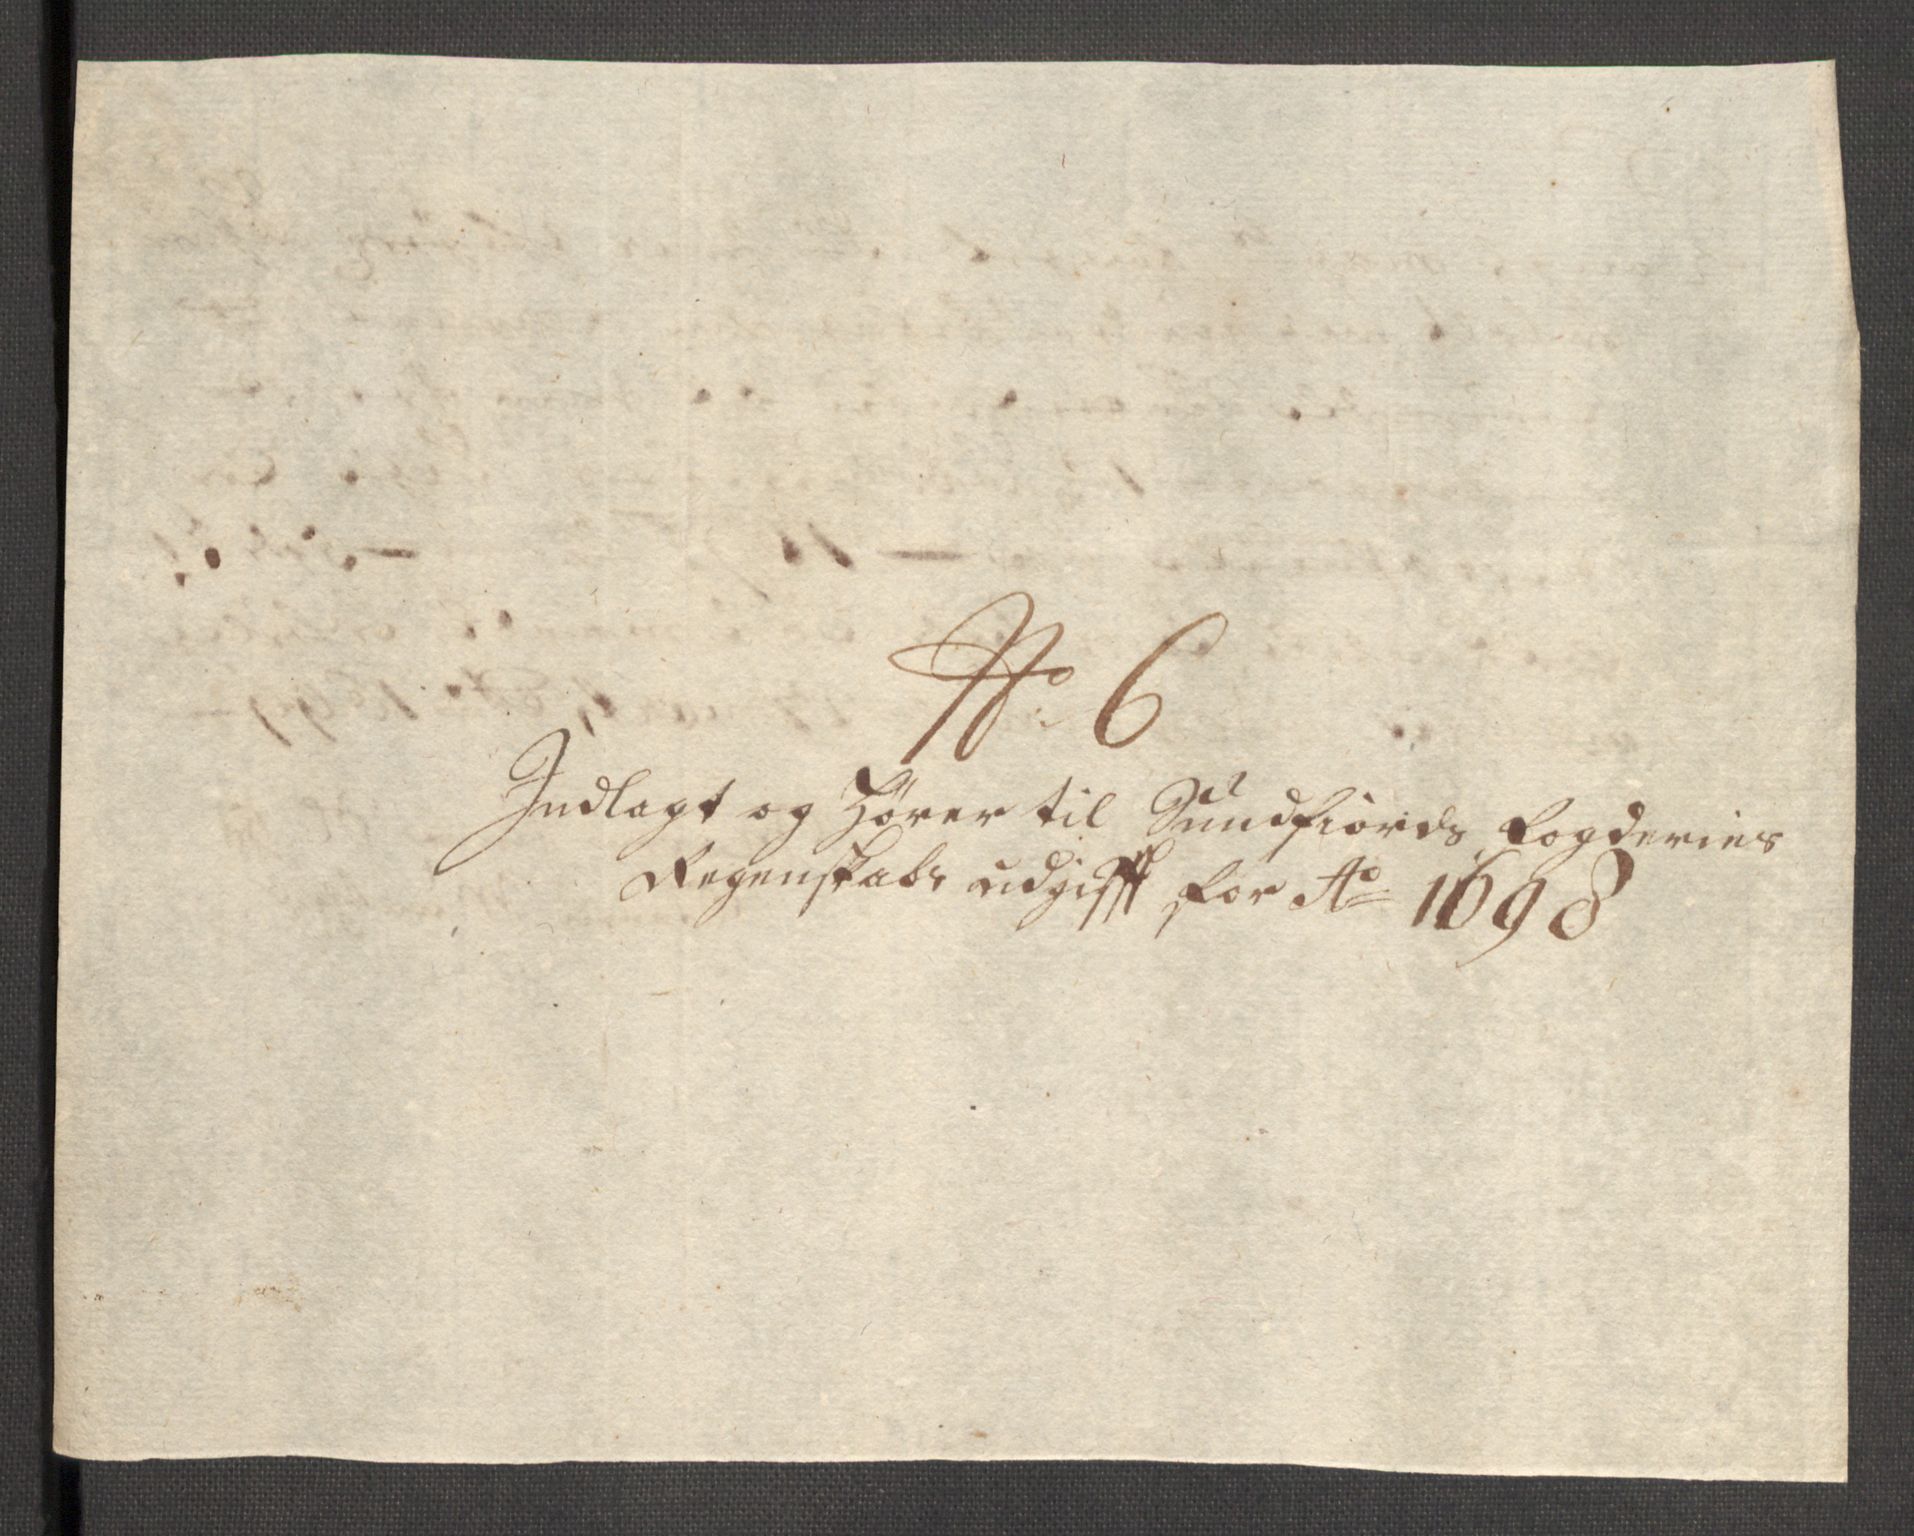 No 6
Indlagt og Hører til Sundfiords fogderies
Regenskabs udgifft for Ao 1698